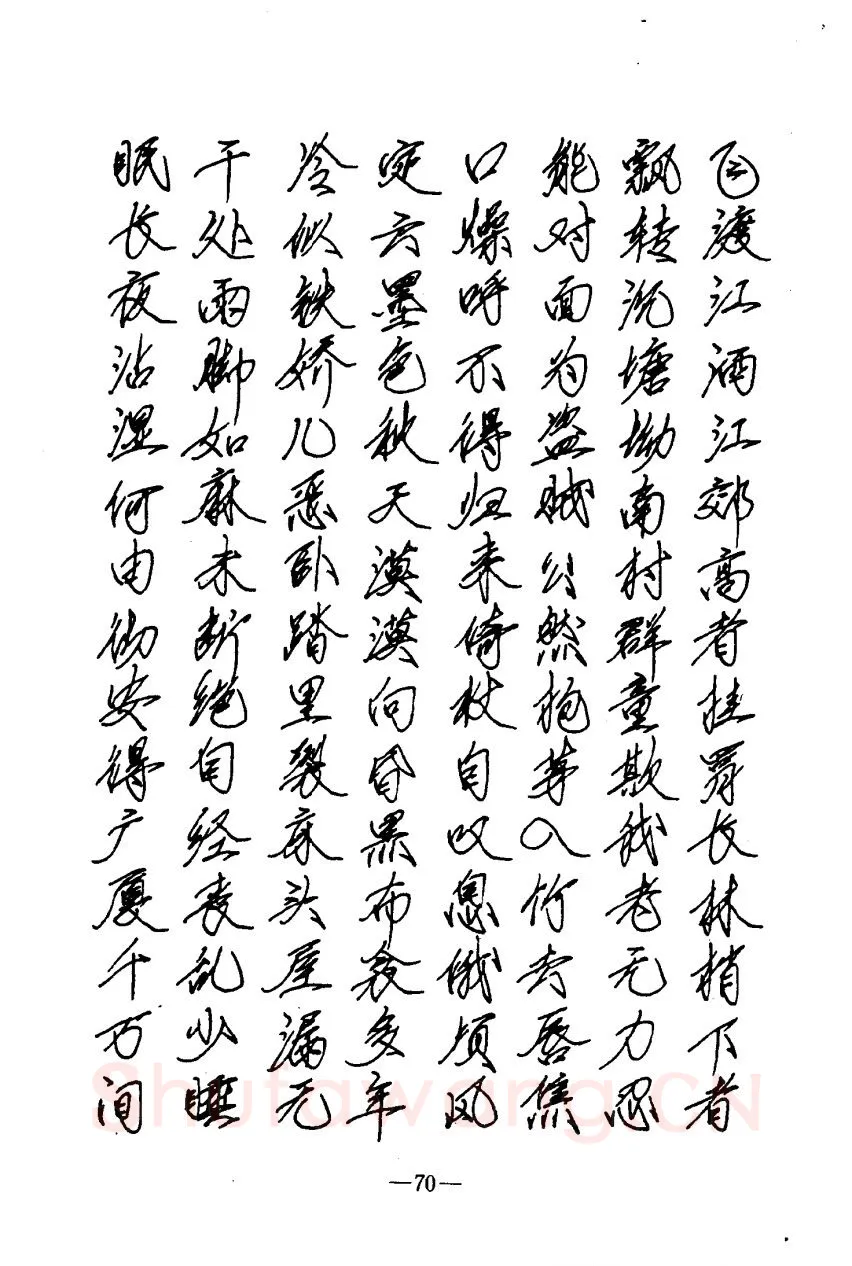 飞渡江洒江郊高者挂罥长林梢下者
飘转沉塘坳南村群童欺我老无力忍
能对面为盗贼公然抱茅入竹去唇焦
口燥呼不得归来倚杖自叹息俄顷风
定云墨色秋天漠漠向昏黑布衾多年
冷似铁娇儿恶卧踏里裂床头屋漏无
干处雨脚如麻未断绝自经丧乱少睡
眠长夜沾湿何由彻安得广厦千万间
Shufawang.CN
—70—